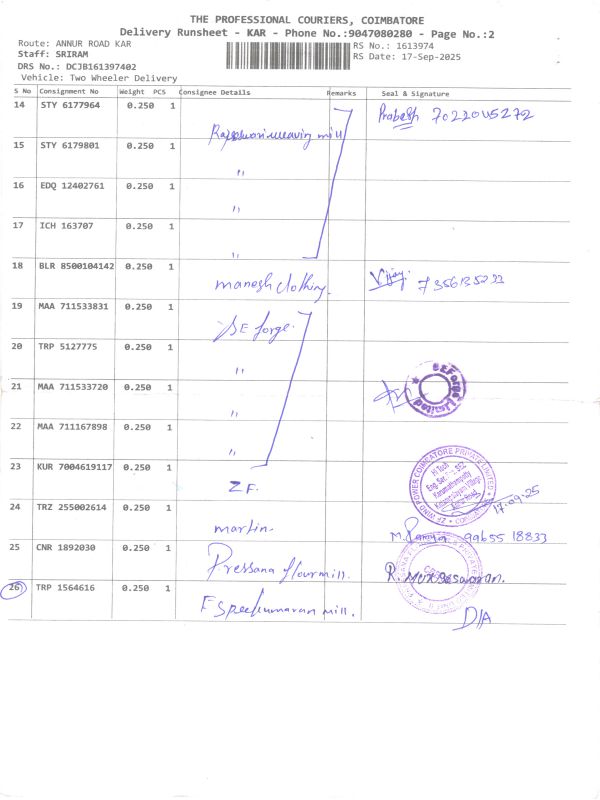 THE PROFESSIONAL COURIERS, COIMBATORE
Delivery Runsheet - KAR - Phone No.:9047080280 - Page No.:2
Route: ANNUR ROAD KAR
Staff: SRIRAM
DRS No.: DCJB161397402
Vehicle: Two Wheeler Delivery
RS No.: 1613974
RS Date: 17-Sep-2025
S No Consignment No Weight PCS Consignee Details Remarks Seal & Signature
14 STY 6177964 0.250 1 weaving mill 7022045272
15 STY 6179801 0.250 1 "
16 EDQ 12402761 0.250 1 "
17 ICH 163707 0.250 1 "
18 BLR 8500104142 0.250 1 manesh clothing Vijay
19 MAA 711533831 0.250 1 SE forge
20 TRP 5127775 0.250 1 "
21 MAA 711533720 0.250 1 " S.E.Forge Limited
22 MAA 711167898 0.250 1 "
23 KUR 7004619117 0.250 1 ZF. ZF WIND POWER COIMBATORE PRIVATE LIMITED 17.09.25
24 TRZ 255002614 0.250 1 martin. 99655 18833
25 CNR 1892030 0.250 1 flour mill.
26 TRP 1564616 0.250 1 mill. D/A